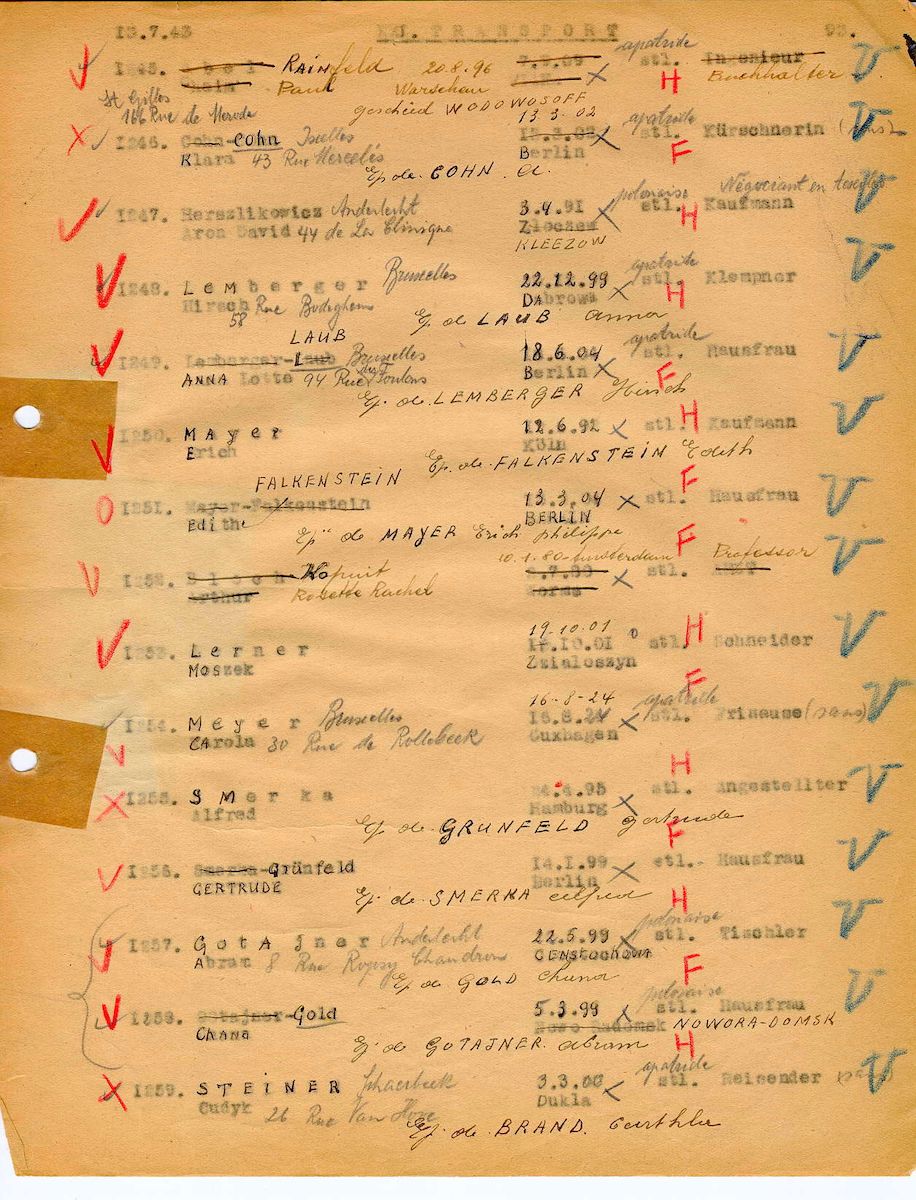 13.7.43 XX. TRANSPORT 93.
1245. Abel RAINfeld 20.8.96 apatride stl. Ingenieur
Paul Warschau H Buchhalter
St Gilles
166 Rue de Merode geschied WODOWOSOFF
13.3.02 apatride
1246. Cohn-COHN Ixelles stl. Kürschnerin
Klara 43 Rue Mercelis Berlin F
Ep de COHN
polonaise Négociant en
1247. Herszlikowicz Anderlecht 3.4.91 stl. H Kaufmann
Aron David 44 de La Clinique Zloczew
KLEEZOW
apatride
1248. Lemberger Bruxelles 22.12.99 stl. Klempner
Hirsch Rue Bodeghem DAbrowa H
58 Ep de LAUB Anna
LAUB apatride
1249. Lemberger-Laub Bruxelles 18.6.04 stl. Hausfrau
ANNA Lotte 94 Rue des Foulons Berlin F
Ep. de LEMBERGER Hirsch
1250. MAyer 12.6.92 stl. H Kaufmann
Erich Köln
Ep. de FALKENSTEIN Edith
FALKENSTEIN F
1251. Mayer-Falkenstein 13.3.04 stl. Hausfrau
Edithe BERLIN
Ep de MAYER Erich philippe F
10.1.80-Amsterdam Professor
1252. Bloch Kopuit stl.
Arthur Rosette Rachel
19.10.01
1253. Lerner 19.10.01 stl. H Schneider
Moszek Dzialoszyn
F
16-8-24 apatride
1254. Meyer Bruxelles 16.8.24 stl. Friseuse (sans)
CArola 30 Rue de Rollebeek Cuxhagen
H
1255. SMerka 4.95 stl. Angestellter
Alfred Hamburg
Ep de GRUNFELD Gertrude
F
1256. Smerka-Grünfeld 14.1.99 stl. Hausfrau
GERTRUDE Berlin
Ep. de SMERKA Alfred H
polonaise
1257. GotAjner Anderlecht 22.5.99 stl. Tischler
Abram 8 Rue Ropsy Chaudron CENstochowa
Ep de GOLD Chana F
polonaise
1258. Gotajner-Gold 5.3.99 stl. Hausfrau
Chana Nowo Radomsk NOWORA-DOMSK
Ep de GOTAJNER Abram H
apatride
1259. STEINER Schaerbeek 3.3.00 stl. Reisender
Cudyk 26 Rue Van Hove Dukla
Ep. de BRAND.